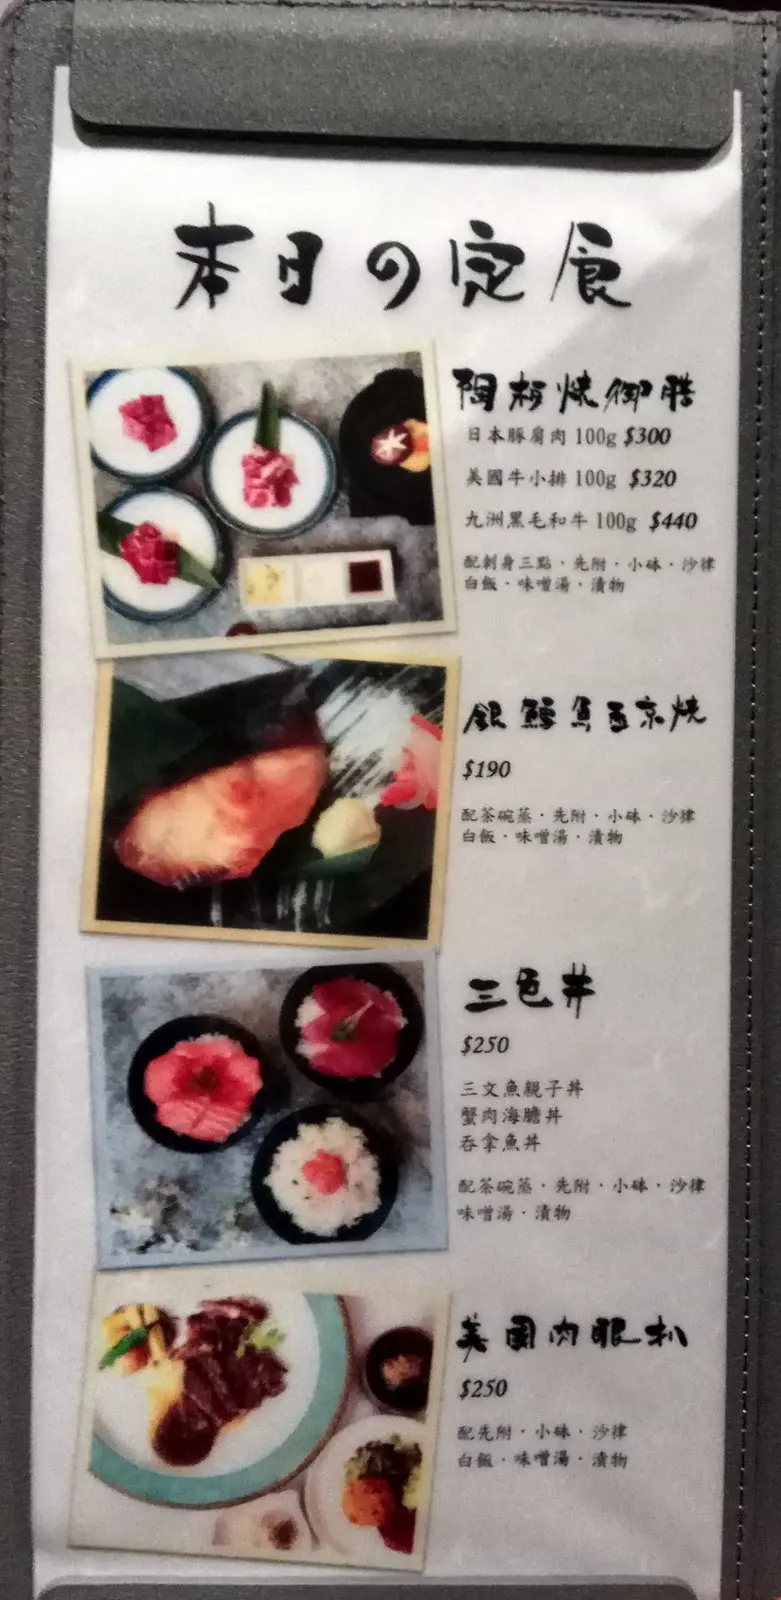 本日の定食
陶板燒御膳
日本豚肩肉 100g $300
美國牛小排 100g $320
九洲黑毛和牛 100g $440
配刺身三點·先附·小砵·沙律
白飯·味噌湯·漬物
銀鱈魚西京燒
$190
配茶碗蒸·先附·小砵·沙律
白飯·味噌湯·漬物
三色丼
$250
三文魚親子丼
蟹肉海膽丼
吞拿魚丼
配茶碗蒸·先附·小砵·沙律
味噌湯·漬物
美國肉眼扒
$250
配先附·小砵·沙律
白飯·味噌湯·漬物